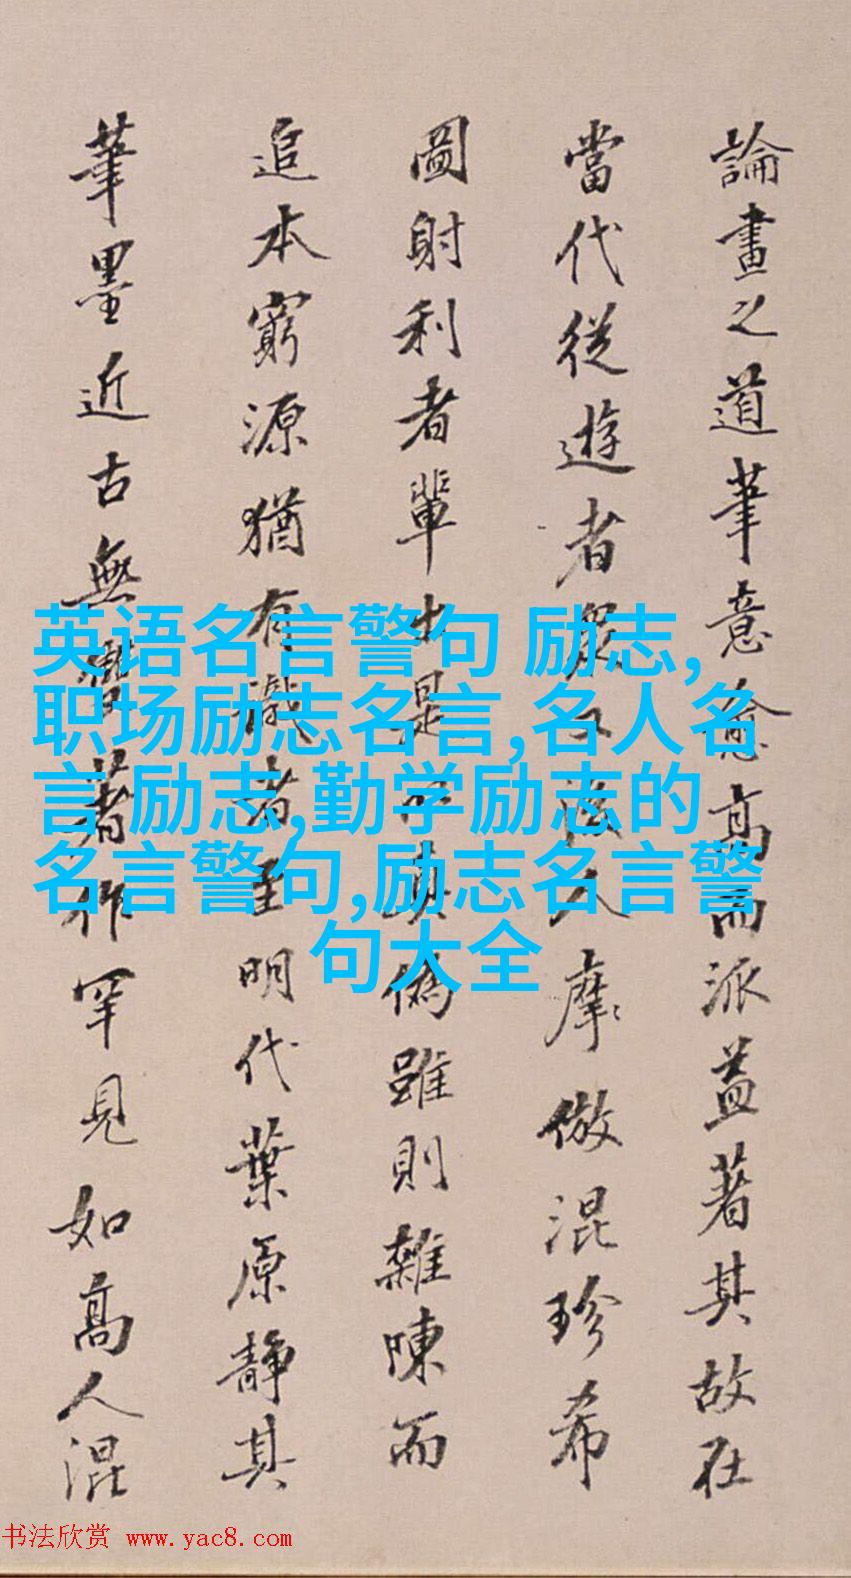 論畫之道筆意愈高而派益著其故在
當代從遊者衆人摩倣混珍希
圖射利者輩出是真偽雖則雜陳而
追本窮源猶有識者至明代葉原靜其
筆墨近古無著作罕見如高人混
英语名言警句 励志,
职场励志名言,名人名
言 励志,勤学励志的
名言警句,励志名言警
句大全
书法欣赏 www.yac8.com